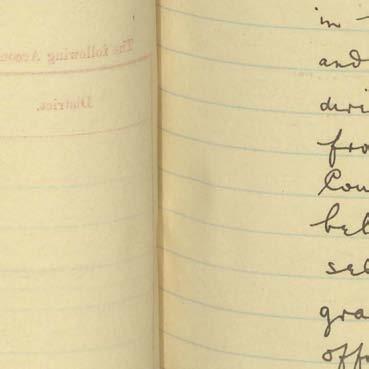 The following Accou
District.
in
and
duri
fro
Cou
bel
sel
gra
offi